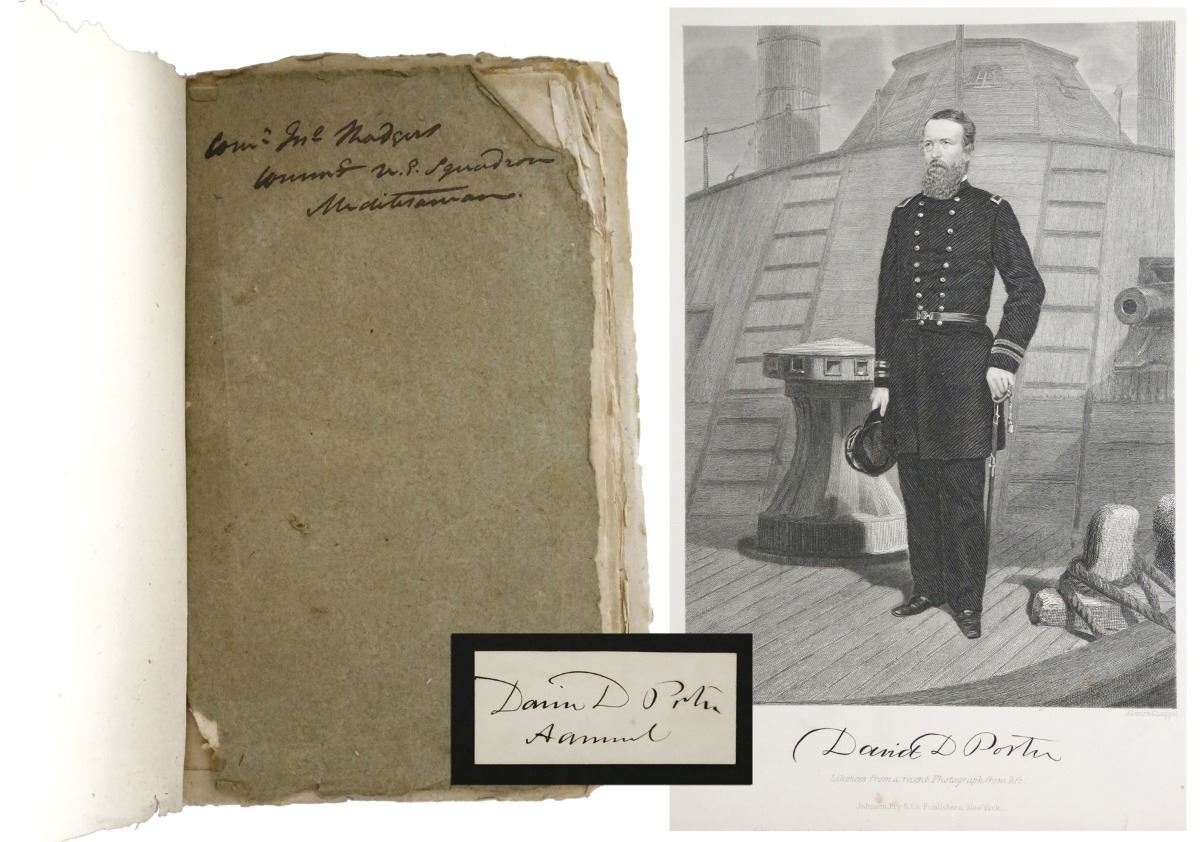 Comr. Jno. Rodgers
Commdt U.S. Squadron
Mediteranean.
David D Porter
Admiral
David D Porter
Likeness from a recent Photograph from life.
Johnson, Fry & Co. Publishers, New York.